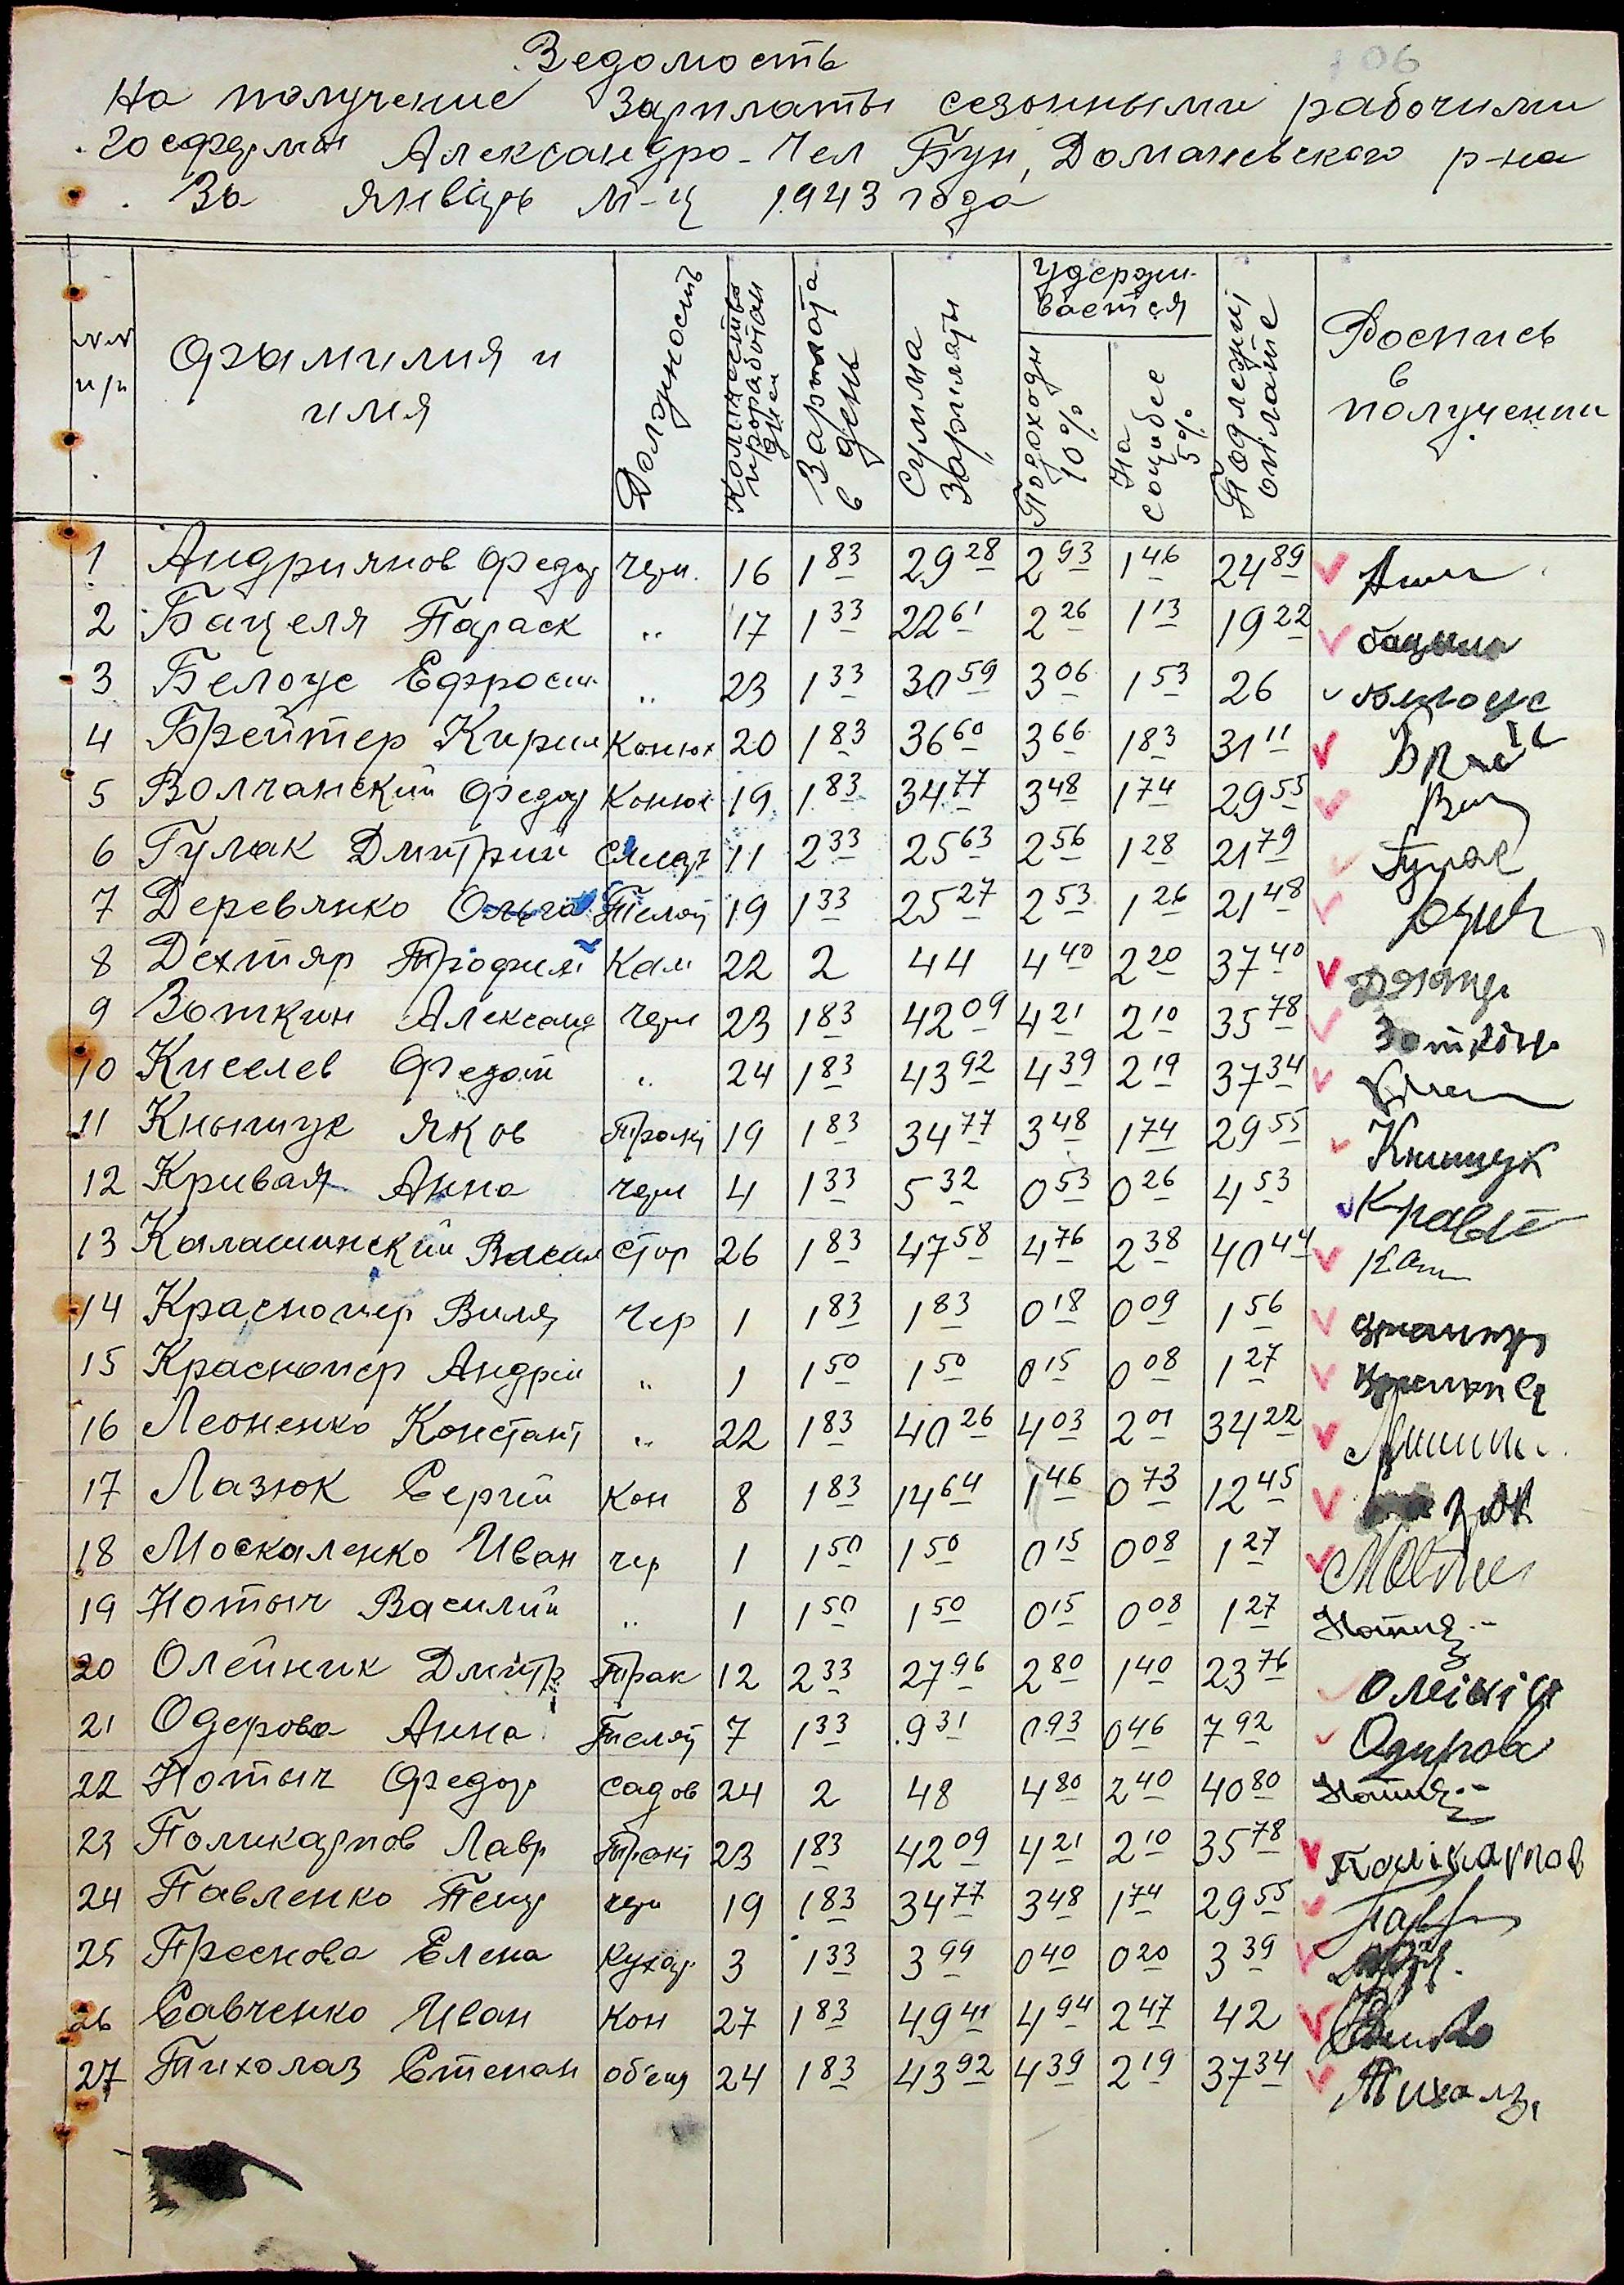 106
Ведомость
На получение Зарплаты сезонными рабочими
госферми Александро-Чел Бун, Доманевского р-на
За январь м-ц 1943 года
№№ п/п
Фамилия и имя
Должность
Количество проработан дней
Зарплата в день
Сумма зарплаты
Удерживается
Подоходн 10%
На соцобес 5%
Подлежит оплате
Роспись в получении
1 Андриянов Федор Чер. 16 1 83 29 28 2 93 1 46 24 89
2 Бацеля Параск " 17 1 33 22 61 2 26 1 13 19 22
3 Белоус Ефросин " 23 1 33 30 59 3 06 1 53 26 Билоус
4 Брейтер Кирил Конюх 20 1 83 36 60 3 66 1 83 31 11
5 Волчанский Федор Конюх 19 1 83 34 77 3 48 1 74 29 55
6 Гулак Дмитрий 11 2 33 25 63 2 56 1 28 21 79 Гулак
7 Деревянко Ольга Телят 19 1 33 25 27 2 53 1 26 21 48
8 Дехтяр Трофим Кам 22 2 44 4 40 2 20 37 40
9 Зоткин Александ Чер 23 1 83 42 09 4 21 2 10 35 78
10 Киселев Федот " 24 1 83 43 92 4 39 2 19 37 34
11 Кнышук Яков Тракт 19 1 83 34 77 3 48 1 74 29 55 Книшук
12 Кривая Анна Чер 4 1 33 5 32 0 53 0 26 4 53
13 Калашинский Васил Стор 26 1 83 47 58 4 76 2 38 40 44
14 Краснопер Виля Чер 1 1 83 1 83 0 18 0 09 1 56
15 Краснопер Андрей " 1 1 50 1 50 0 15 0 08 1 27
16 Леоненко Констант " 22 1 83 40 26 4 03 2 01 34 22
17 Лазюк Сергий Кон 8 1 83 14 64 1 46 0 73 12 45 зюк
18 Москаленко Иван чер 1 1 50 1 50 0 15 0 08 1 27
19 Нотыч Василий " 1 1 50 1 50 0 15 0 08 1 27
20 Олейник Дмитр Трак 12 2 33 27 96 2 80 1 40 23 76
21 Одерова Анна Телят 7 1 33 9 31 0 93 0 46 7 92 Одирова
22 Нотыч Федор садов 24 2 48 4 80 2 40 40 80
23 Поликарпов Лавр Тракт 23 1 83 42 09 4 21 2 10 35 78 Полікарпов
24 Павленко Петр чер 19 1 83 34 77 3 48 1 74 29 55
25 Преснова Елена Кухар 3 1 33 3 99 0 40 0 20 3 39
26 Савченко Иван Кон 27 1 83 49 41 4 94 2 47 42
27 Тихолаз Степан об'езд 24 1 83 43 92 4 39 2 19 37 34 Тихолаз